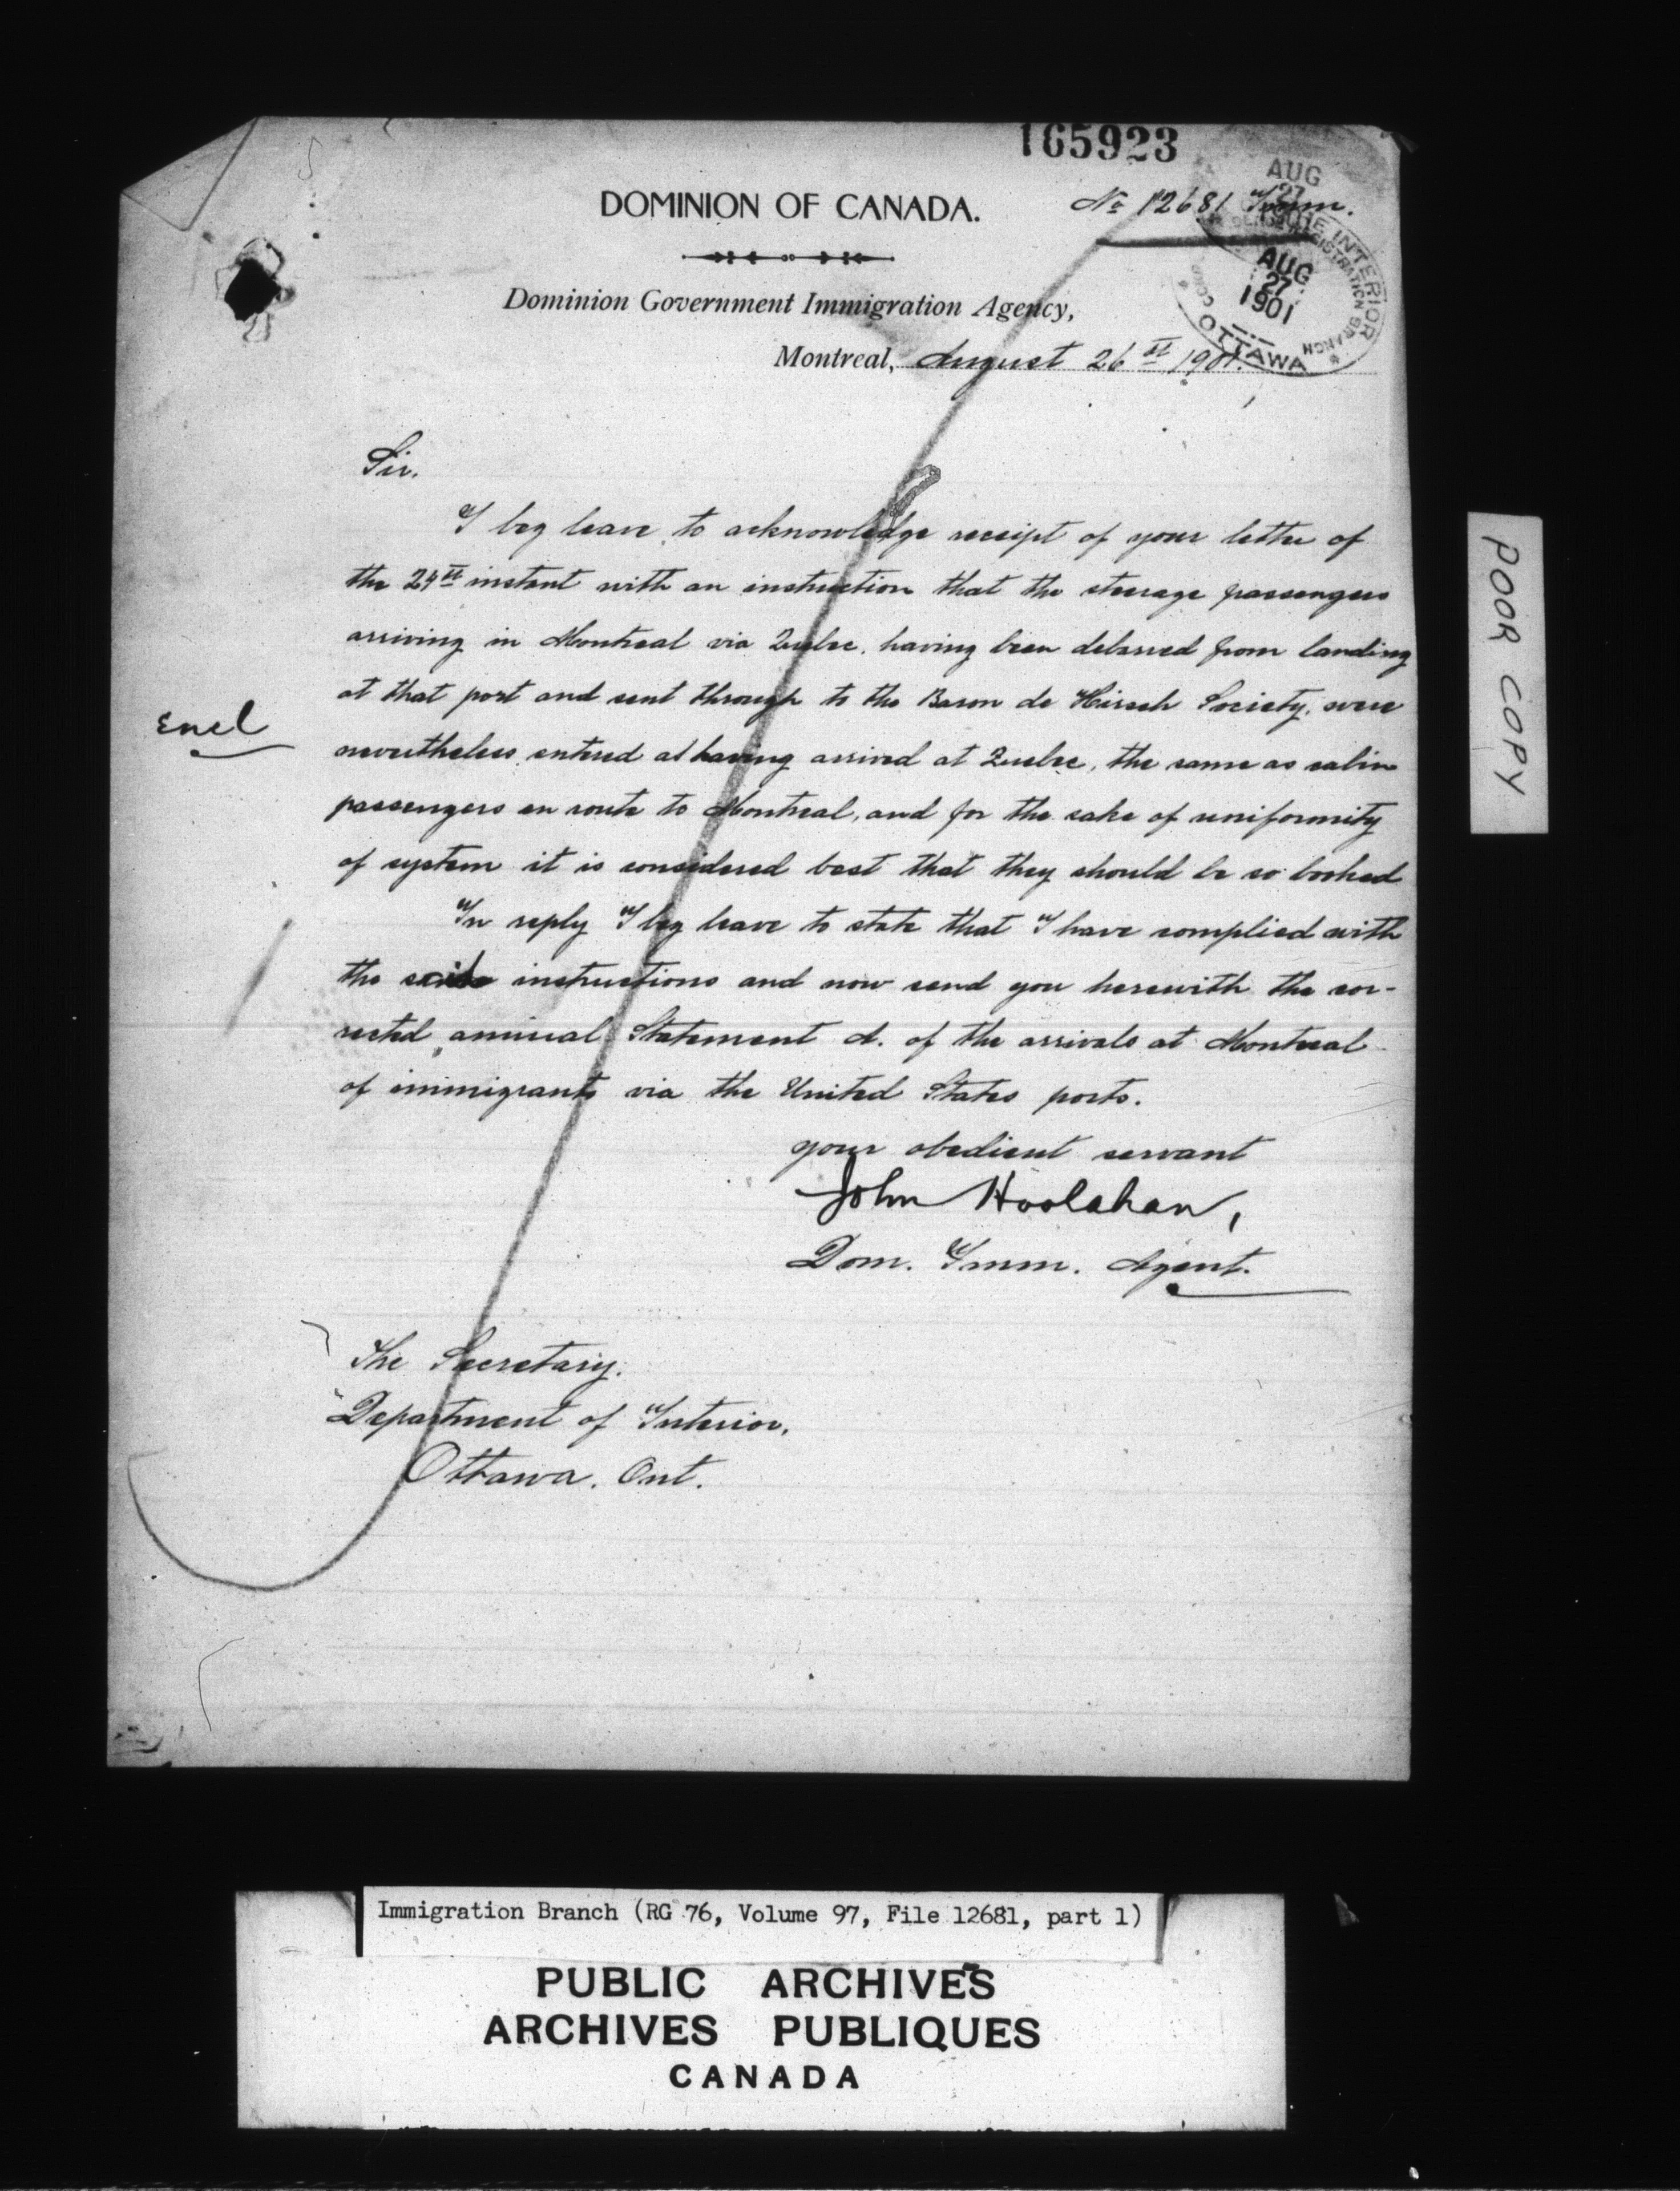 165923
No 12681 Imm.
DOMINION OF CANADA.
AUG
27
AUG
27
1901
OTTAWA
Dominion Government Immigration Agency,
Montreal, August 26th 1901.
Sir.
I beg leave to acknowledge receipt of your letter of
the 24th instant with an instruction that the steerage passengers
arriving in Montreal via Quebec, having been debarred from landing
at that port and sent through to the Baron de Hirsch Society, were
Encl
nevertheless entered as having arrived at Quebec, the same as cabin
passengers en route to Montreal, and for the sake of uniformity
of system it is considered best that they should be so booked
In reply I beg leave to state that I have complied with
the said instructions and now send you herewith the cor-
rected annual Statement A. of the arrivals at Montreal
of immigrants via the United States ports.
your obedient servant
John Hoolahan,
Dom. Imm. Agent.
The Secretary.
Department of Interior,
Ottawa. Ont.
POOR COPY
Immigration Branch (RG 76, Volume 97, File 12681, part 1)
PUBLIC ARCHIVES
ARCHIVES PUBLIQUES
CANADA